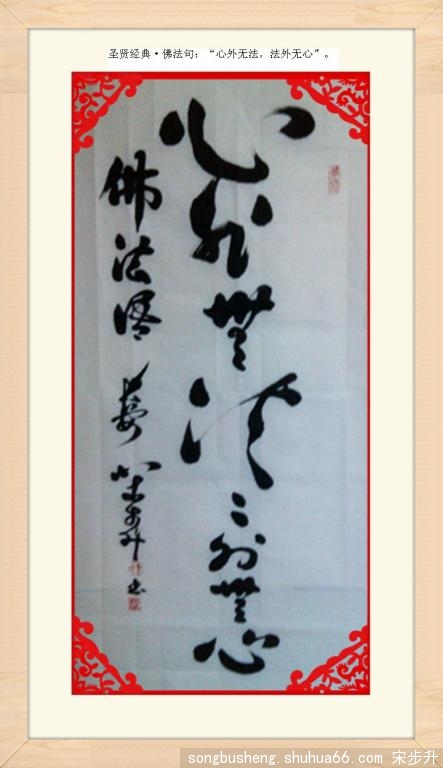 圣贤经典·佛法句：“心外无法，法外无心”。
心外無法〻外無心
佛法语
宋步升
书
songbusheng.shuhua66.com 宋步升